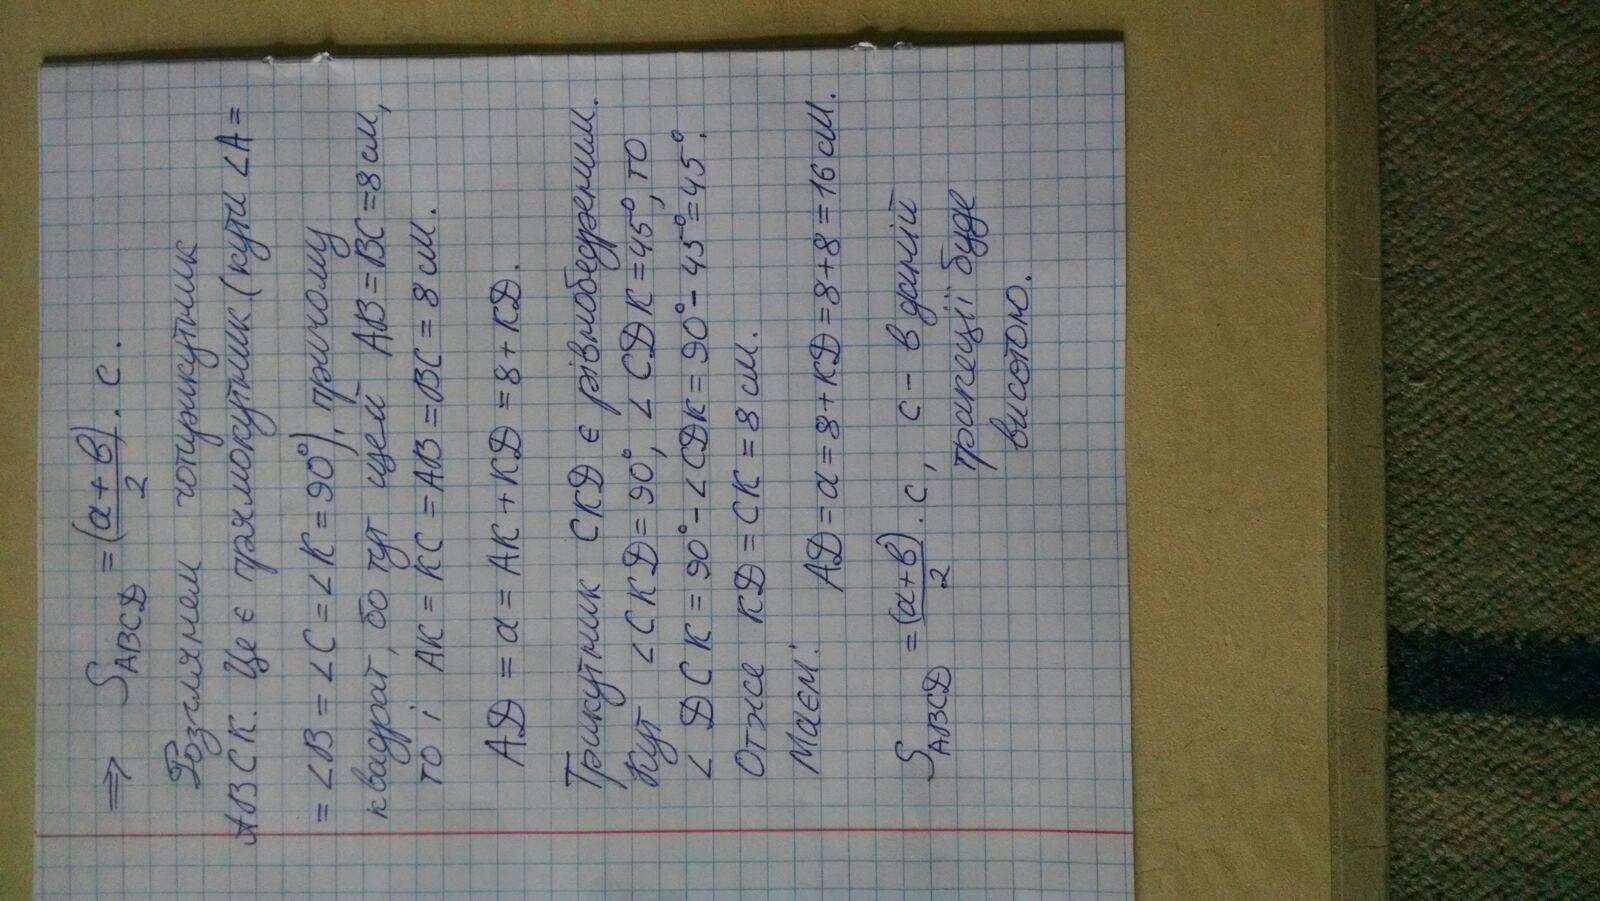 ⇒ S_ABCD = (a+b)/2 · c.
Розглянем чотирикутник
ABCK. Це є прямокутник (кути ∠A =
= ∠B = ∠C = ∠K = 90°), причому
квадрат, бо тут щем AB = BC = 8 см,
то і AK = KC = AB = BC = 8 см.
AD = a = AK + KD = 8 + KD.
Трикутник CKD є рівнобедреним.
Кут ∠CKD = 90°, ∠CDK = 45°, то
∠DCK = 90° - ∠CDK = 90° - 45° = 45°.
Отже KD = CK = 8 см.
Маєм: AD = a = 8 + KD = 8 + 8 = 16 см.
S_ABCD = (a+b)/2 · c, c - в даній
трапеції буде
висотою.